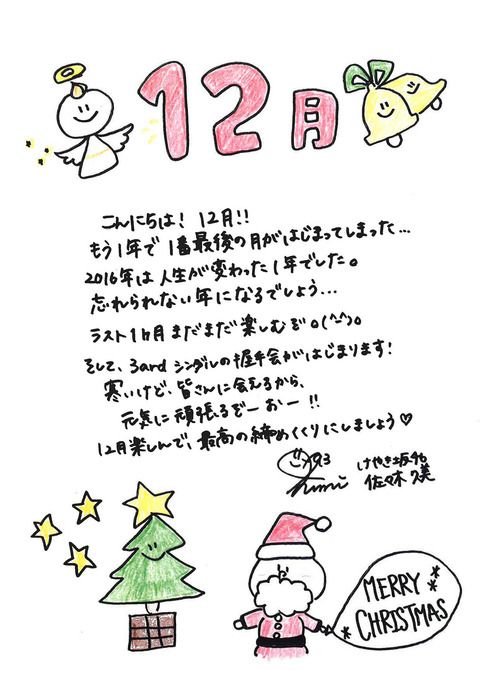 12月
こんにちは! 12月!!
もう1年で1番最後の月がはじまってしまった…
2016年は人生が変わった1年でした。
忘れられない年になるでしょう…
ラスト1ヶ月まだまだ楽しむぞ。(^-^)。
そして、3ardシングルの握手会がはじまります!
寒いけど、皆さんに会えるから、
元気に頑張るぞーおー!!
12月楽しんで、最高の締めくくりにしましょう♡
けやき坂46
佐々木久美
MERRY
CHRISTMAS